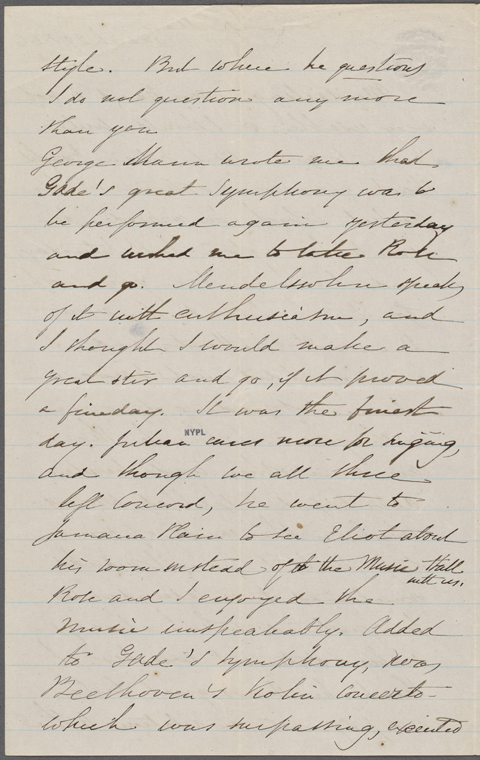 style. But where he questions
I do not question any more
than you
George Mann wrote me that
Gade's great Symphony was to
be performed again yesterday
and wished me to take Rose
and go. Mendelssohn speaks
of it with enthusiasm, and
I thought I would make a
great stir and go, if it proved
a fine day. It was the finest
day. Julian cares more for rigging,
NYPL
and though we all three
left Concord, he went to
Jamaica Plain to see Eliot about
his room instead of to the Music Hall
with us.
Rose and I enjoyed the
music unspeakably. Added
to Gade's Symphony, was
Beethoven's Violin Concerto -
which was surpassing, executed